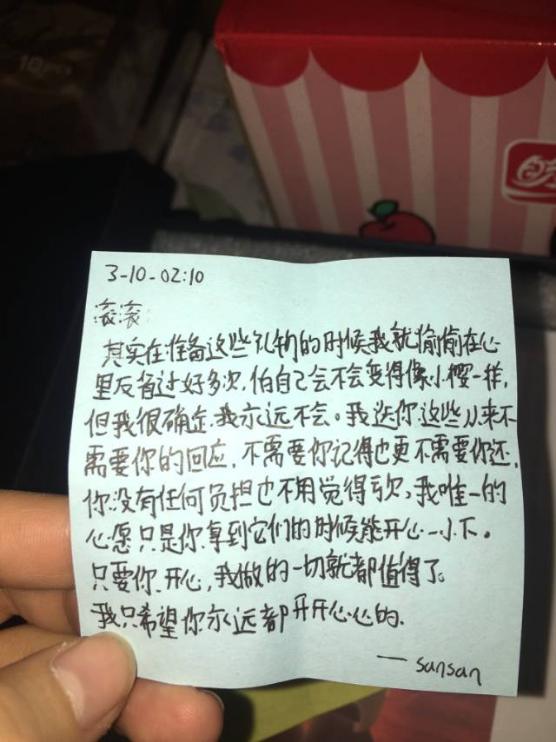 3-10-02:10
滚滚:
其实在准备这些礼物的时候我就偷偷在心
里反省过好多次,怕自己会不会变得像小樱一样,
但我很确定,我永远不会。我送你这些从来不
需要你的回应,不需要你记得也更不需要你还,
你没有任何负担也不用觉得亏欠,我唯一的
心愿只是你拿到它们的时候能开心一小下。
只要你开心,我做的一切就都值得了。
我只希望你永远都开开心心的.
— sunsan